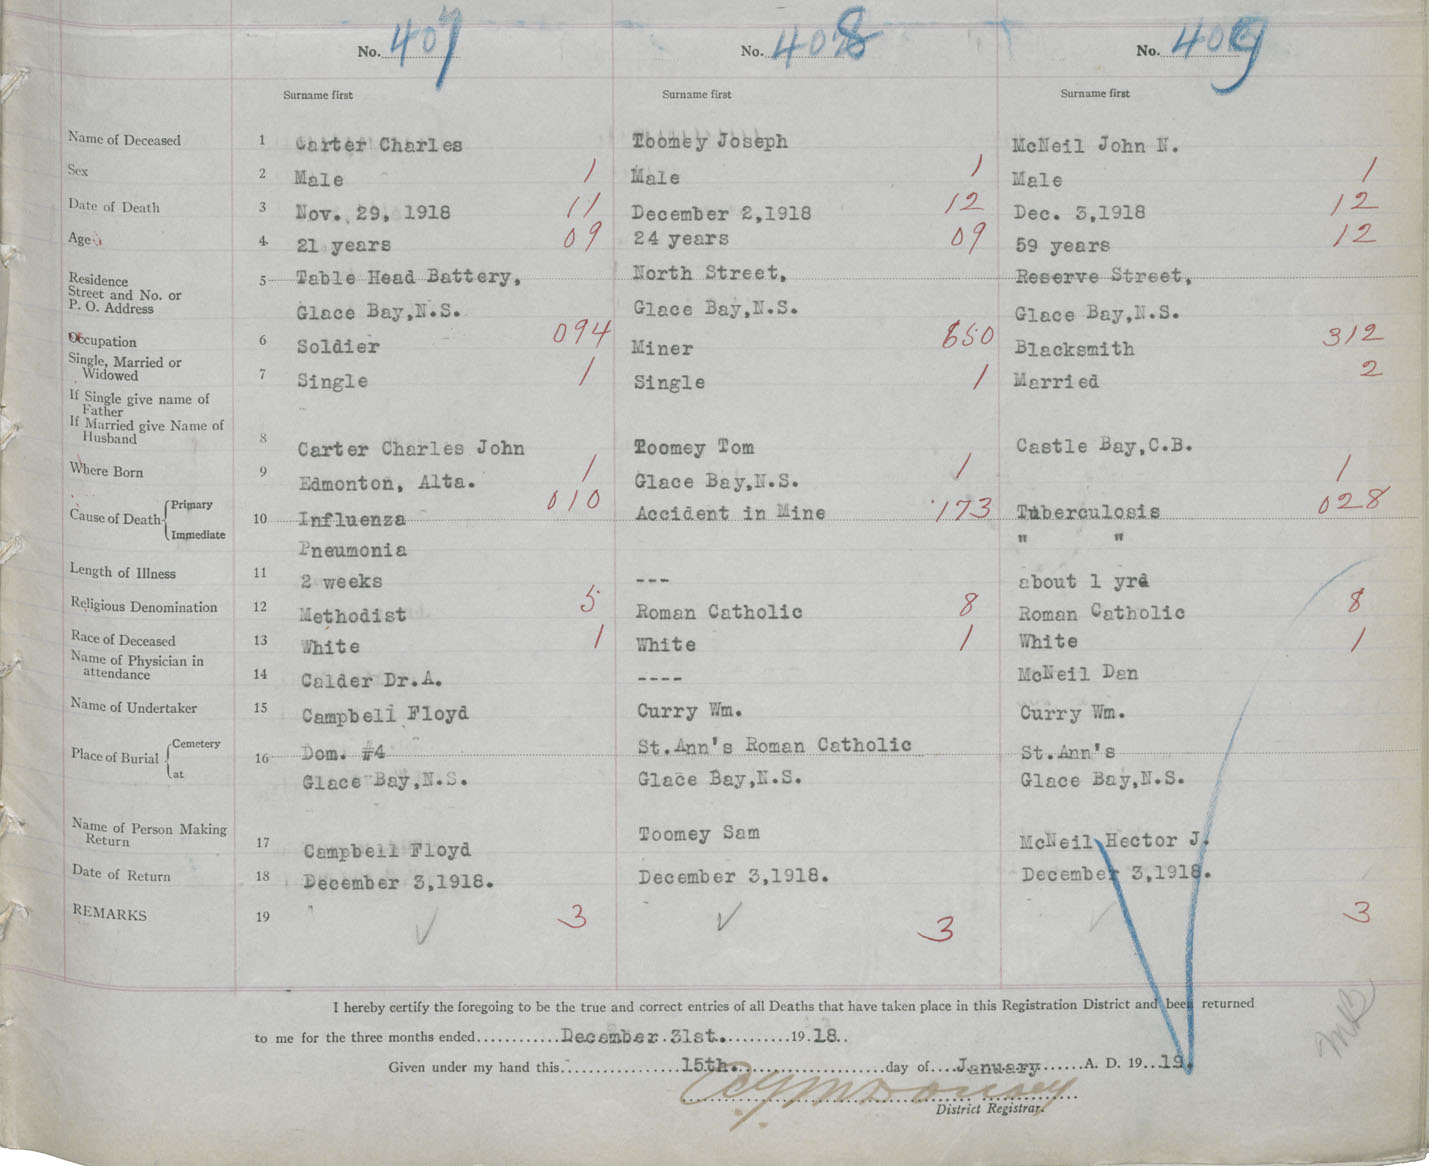 No. 407 No. 408 No. 409
Surname first Surname first Surname first
Name of Deceased 1 Carter Charles Toomey Joseph McNeil John N.
Sex 2 Male 1 Male 1 Male 1
Date of Death 3 Nov. 29, 1918 11 December 2,1918 12 Dec. 3,1918 12
Age 4 21 years 09 24 years 09 59 years 12
Residence 5 Table Head Battery, North Street, Reserve Street,
Street and No. or
P. O. Address Glace Bay,N.S. Glace Bay,N.S. Glace Bay,N.S.
Occupation 6 Soldier 094 Miner 650 Blacksmith 312
Single, Married or
Widowed 7 Single 1 Single 1 Married 2
If Single give name of
Father
If Married give Name of
Husband 8 Carter Charles John Toomey Tom Castle Bay,C.B.
Where Born 9 Edmonton, Alta. 1 Glace Bay,N.S. 1 1
Cause of Death { Primary
Immediate 10 Influenza 010 Accident in Mine 173 Tuberculosis 028
Pneumonia " "
Length of Illness 11 2 weeks --- about 1 yrd
Religious Denomination 12 Methodist 5 Roman Catholic 8 Roman Catholic 8
Race of Deceased 13 White 1 White 1 White 1
Name of Physician in
attendance 14 Calder Dr.A. ---- McNeil Dan
Name of Undertaker 15 Campbell Floyd Curry Wm. Curry Wm.
Place of Burial { Cemetery 16 Dom. #4 St.Ann's Roman Catholic St.Ann's
at Glace Bay,N.S. Glace Bay,N.S. Glace Bay,N.S.
Name of Person Making
Return 17 Campbell Floyd Toomey Sam McNeil Hector J.
Date of Return 18 December 3,1918. December 3,1918. December 3,1918.
REMARKS 19 3 3 3
I hereby certify the foregoing to be the true and correct entries of all Deaths that have taken place in this Registration District and been returned
to me for the three months ended December 31st. 1918..
Given under my hand this 15th. day of January A. D. 1919.
District Registrar.